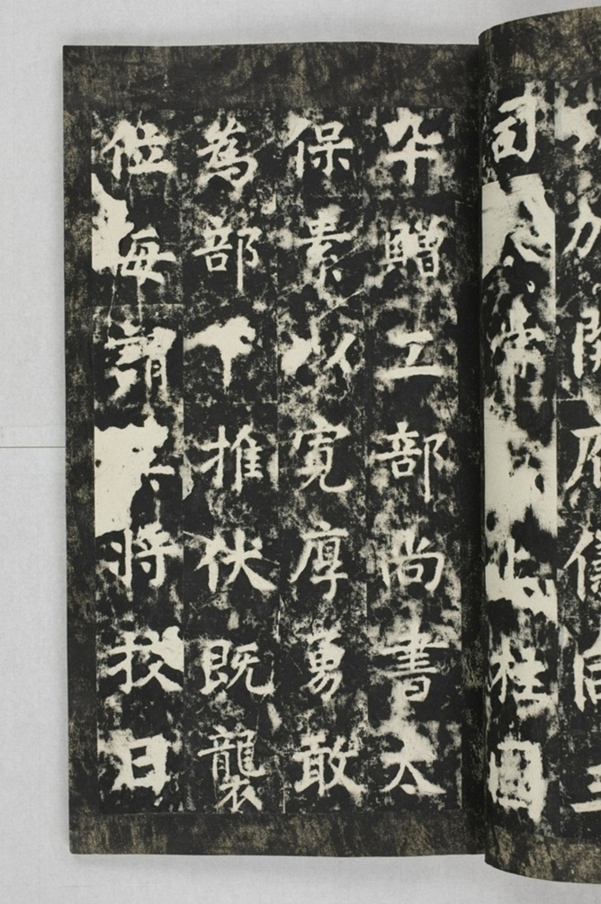 加開府儀同三
司太常上柱國
卒贈工部尚書太
保素以寬厚勇敢
為部下推伏既襲
位每謂將校曰